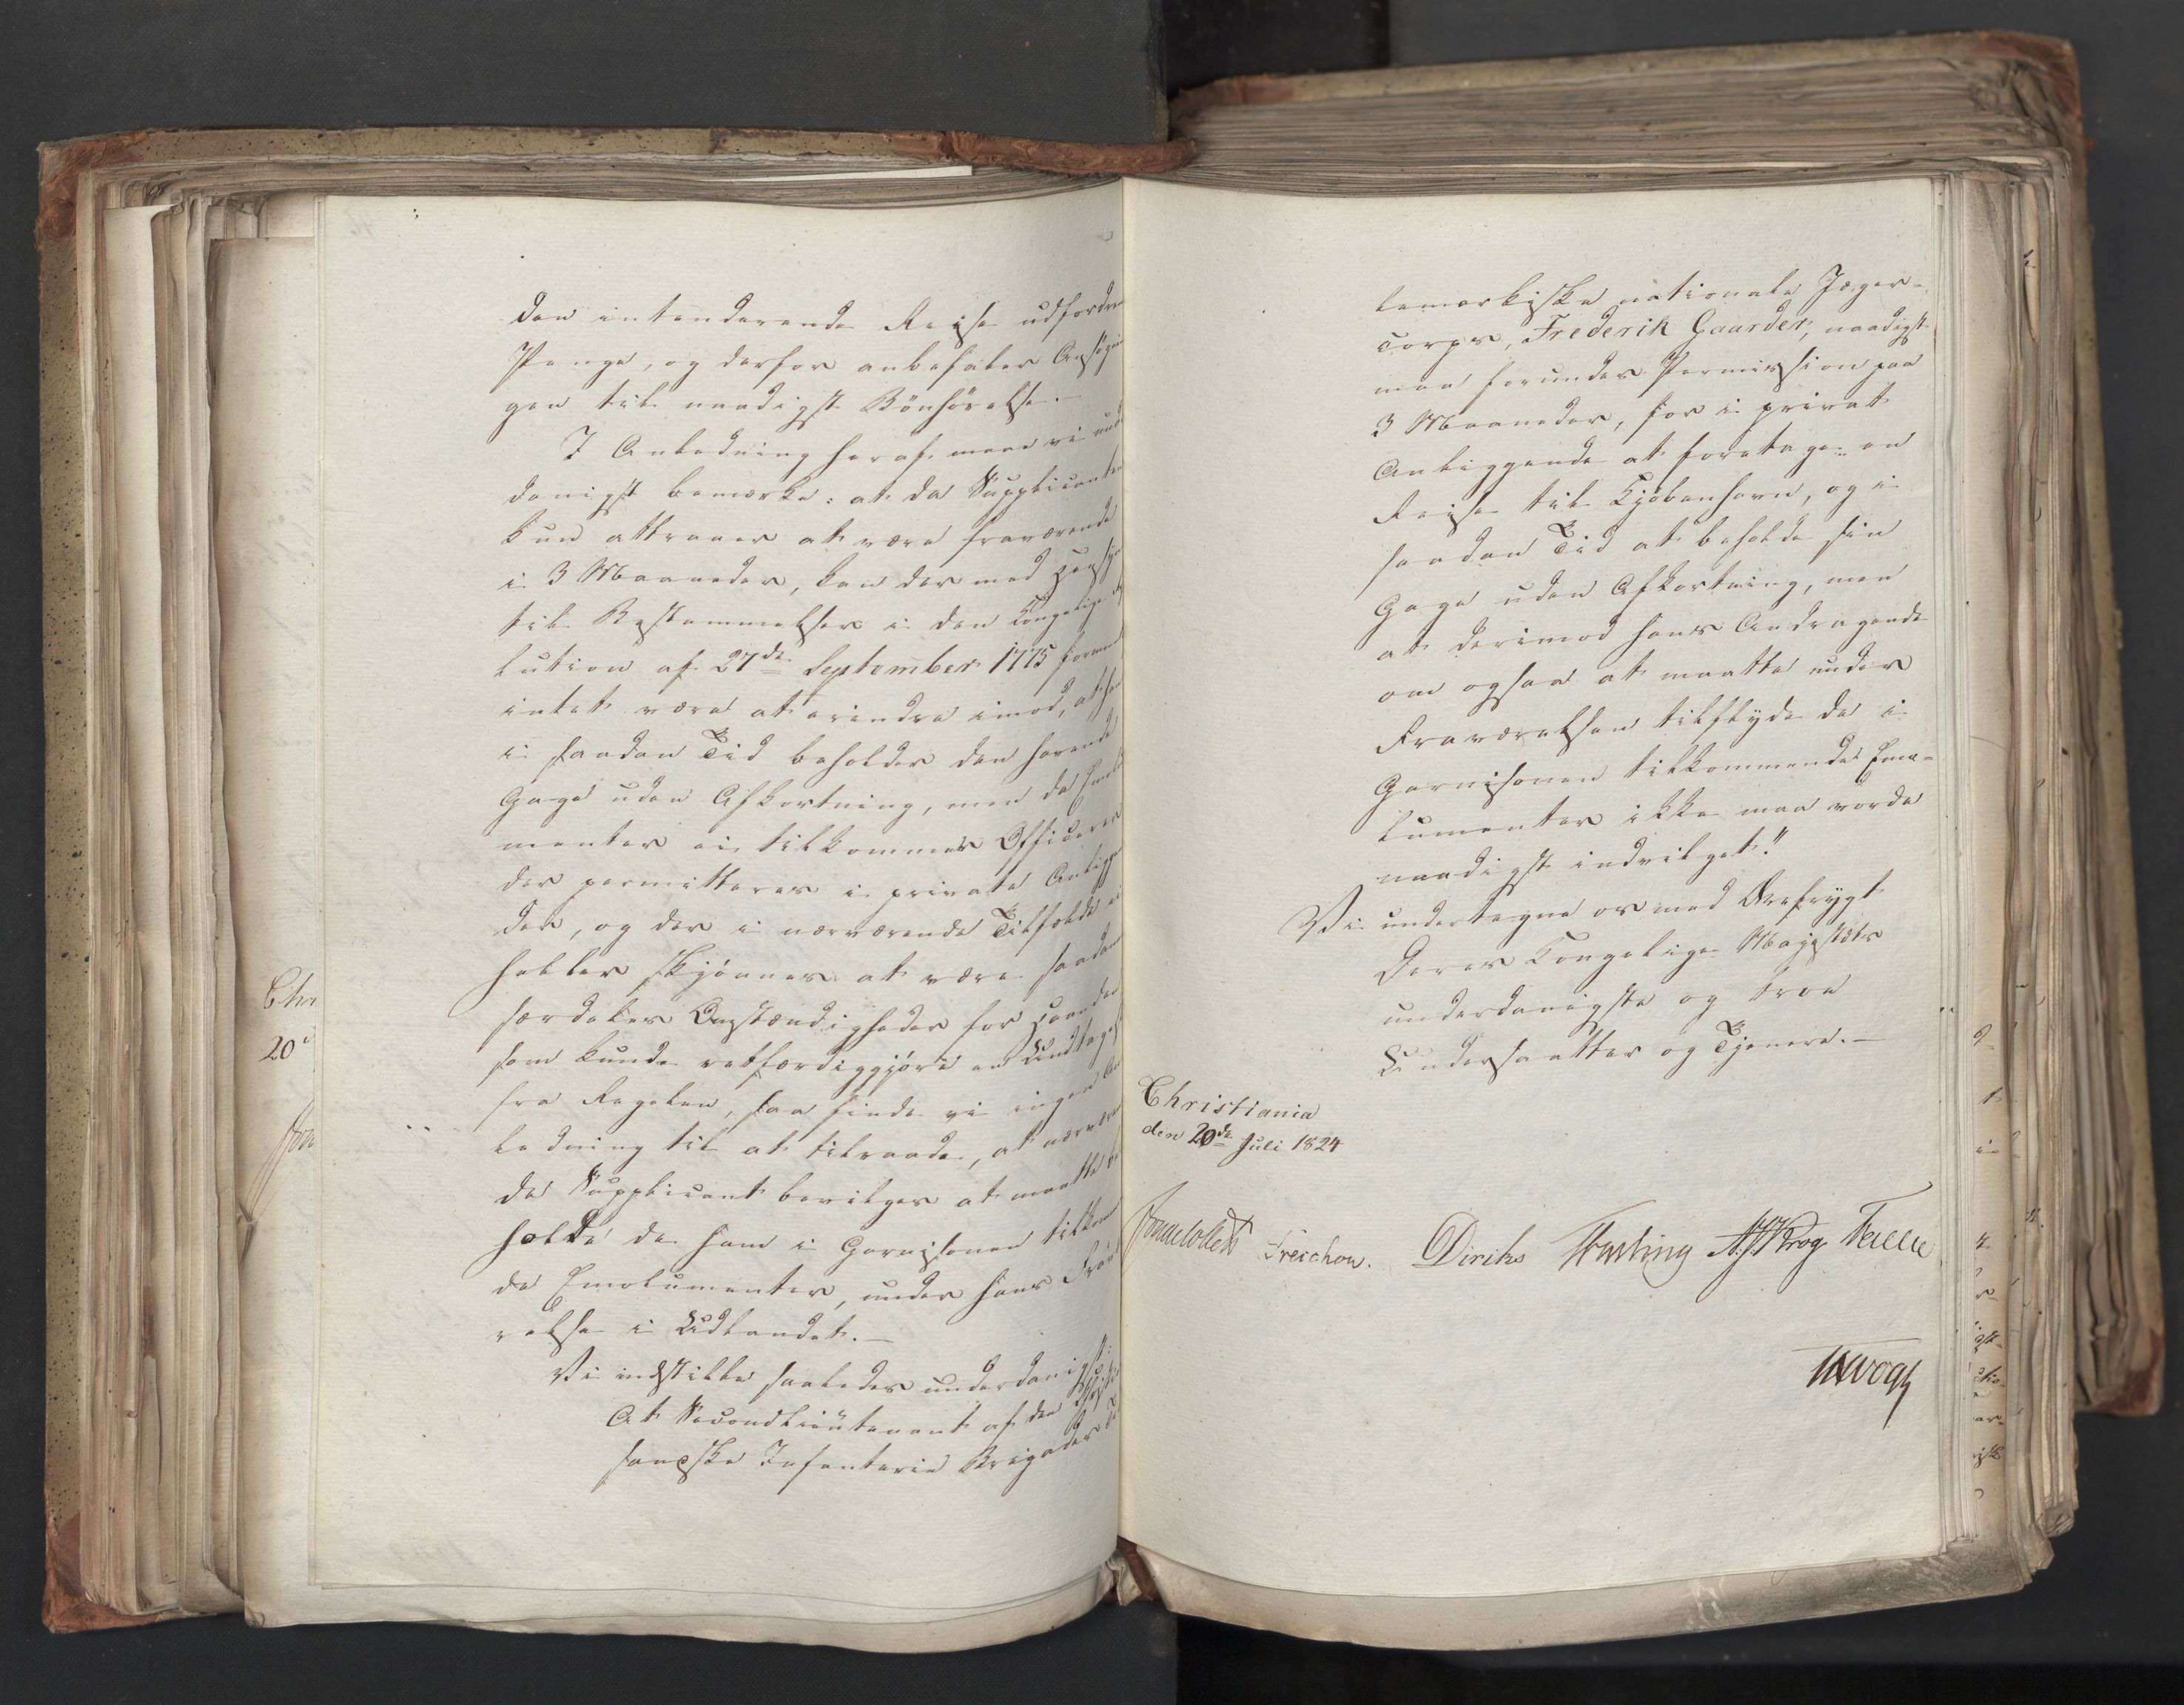 den intenderende Reise udfordrer
Penge, og derfor anbefaler Ansøgnin
gen til naadigst Bönhörelse.—
I Anledning heraf maae vi und
danigst bemærke: at da Supplicanten
kun attraaer at være fraværende
i 3 Maaneder, kan der med Hensyn
til Bestemmelser i den Kongelige
lution af 27de September 1775 formeent
intet være at erindre imod, at han
i saadan Tid beholder den havende
Gage uden Afkortning, men da Emolu
menter ei tilkommer Officerer
der permitteres i private Anliggen
der, og der i nærværende Tilfælde ei
heller skjönnes at være saadan
særdeles Omstændigheder for Haanden
som kunde retfærdiggjöre en Undtagelse
fra Regelen, saa finde vi ingen An
ledning til at tilraade, at nærværen
de Supplicant bevilges at maatte be
holde de ham i Garnisonen tilkommen
de Emolumenter, under hans Fravæ
relse i Udlandet.—
Vi indstille saaledes underdanigst:
At Secondlieutenant af den Christi
sandske Infanterie Brigades
Chr
20
lemarkiske nationale Jæger-
corps, Frederik Gaarder, naadigst
maa forundes Permission paa
3 Maaneder, for i privat
Anliggende at foretage en
Reise til Kjöbenhavn, og i
saadan Tid at beholde sin
Gage uden Afkortning, men
at derimod hans Andragende
om ogsaa at maatte under
Fraværelsen tilflyde de i
Garnisonen tilkommende Emo-
lumenter ikke maa vorde
naadigst indvilget."
Vi undertegne os med Ærefrygt
Deres Kongelige Majestæts
underdanigste og troe
Undersaatter og Tjenere.—
Christiania
den 20de Juli 1824
Jonas Collett Treschow. Diriks Fasting Krog